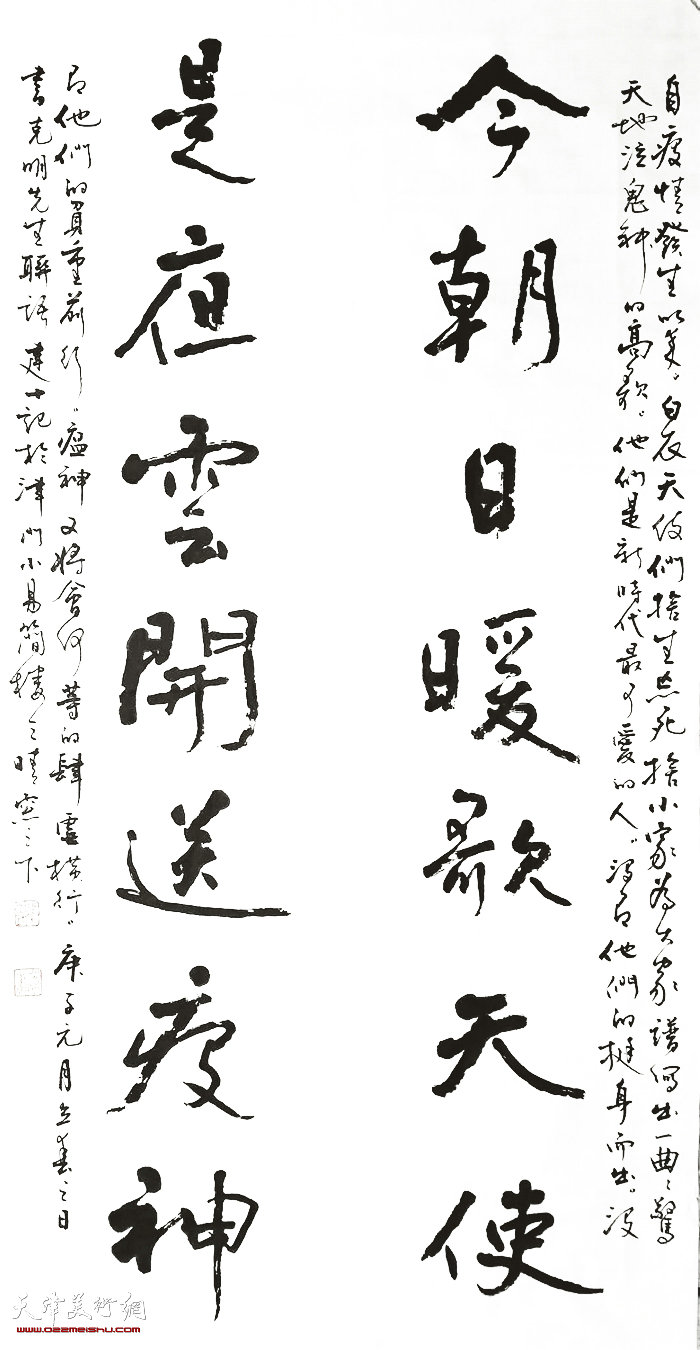 自疫情發生以來。白衣天使們捨生忘死捨小家為大家譜寫出一曲曲驚
天地泣鬼神的高歌。他們是新時代最可愛的人。沒有他們的挺身而出。沒
今朝日暖歌天使
是夜雲開送疫神
有他們的負重前行。瘟神又將會何等的肆虐橫行。庚子元月立春之日
書克明先生聯語 建士記於津門小易簡樓之晴窗之下
天津美術網
www.022meishu.com